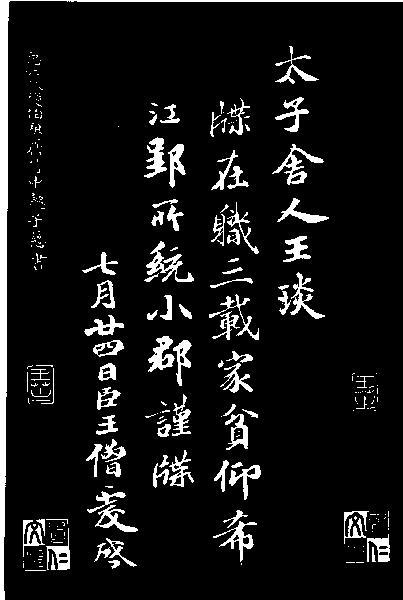 太子舍人王琰
牒在職三載家貧仰希
江郢所統小郡謹牒
七月廿四日臣王僧虔啓